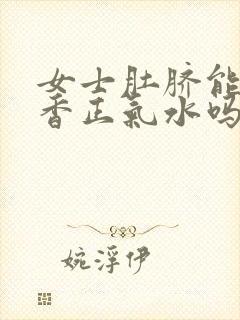 女士肚脐能
香正氣水吗
婉浮伊